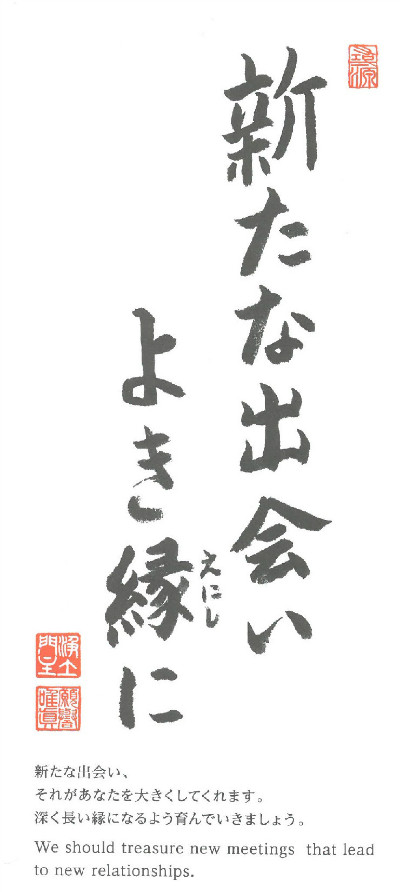 新たな出会い
よき縁に
えにし
新たな出会い、
それがあなたを大きくしてくれます。
深く長い縁になるよう育んでいきましょう。
We should treasure new meetings that lead
to new relationships.